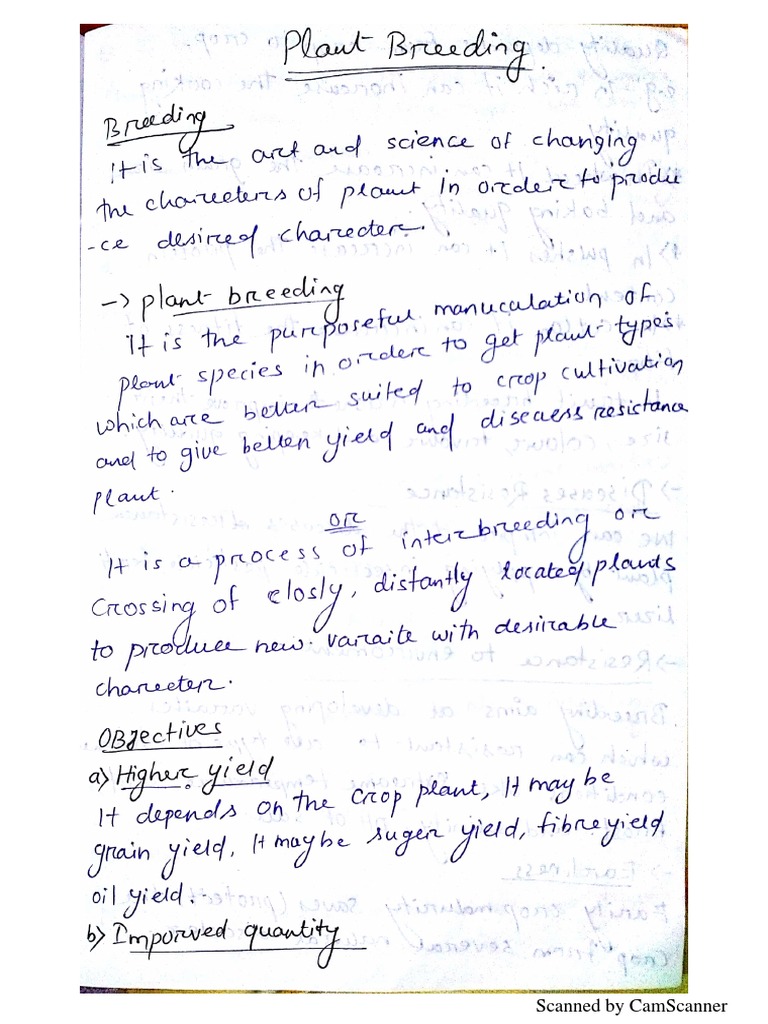 Plant Breeding
Breeding
It is the art and science of changing
the charecters of plant in order to produ
-ce desired charecter.
-> plant breeding
It is the purposeful manuculation of
plant species in order to get plant types
which are better suited to crop cultivation
and to give better yield and diseaess resistance
plant.
or
It is a process of interbreeding or
crossing of closly, distantly located plants
to produce new varaite with desirable
charecter.
Objectives
a) Higher yield
It depends on the crop plant, It may be
grain yield, It maybe suger yield, fibre yield
oil yield.
b) Imporved quantity
Scanned by CamScanner